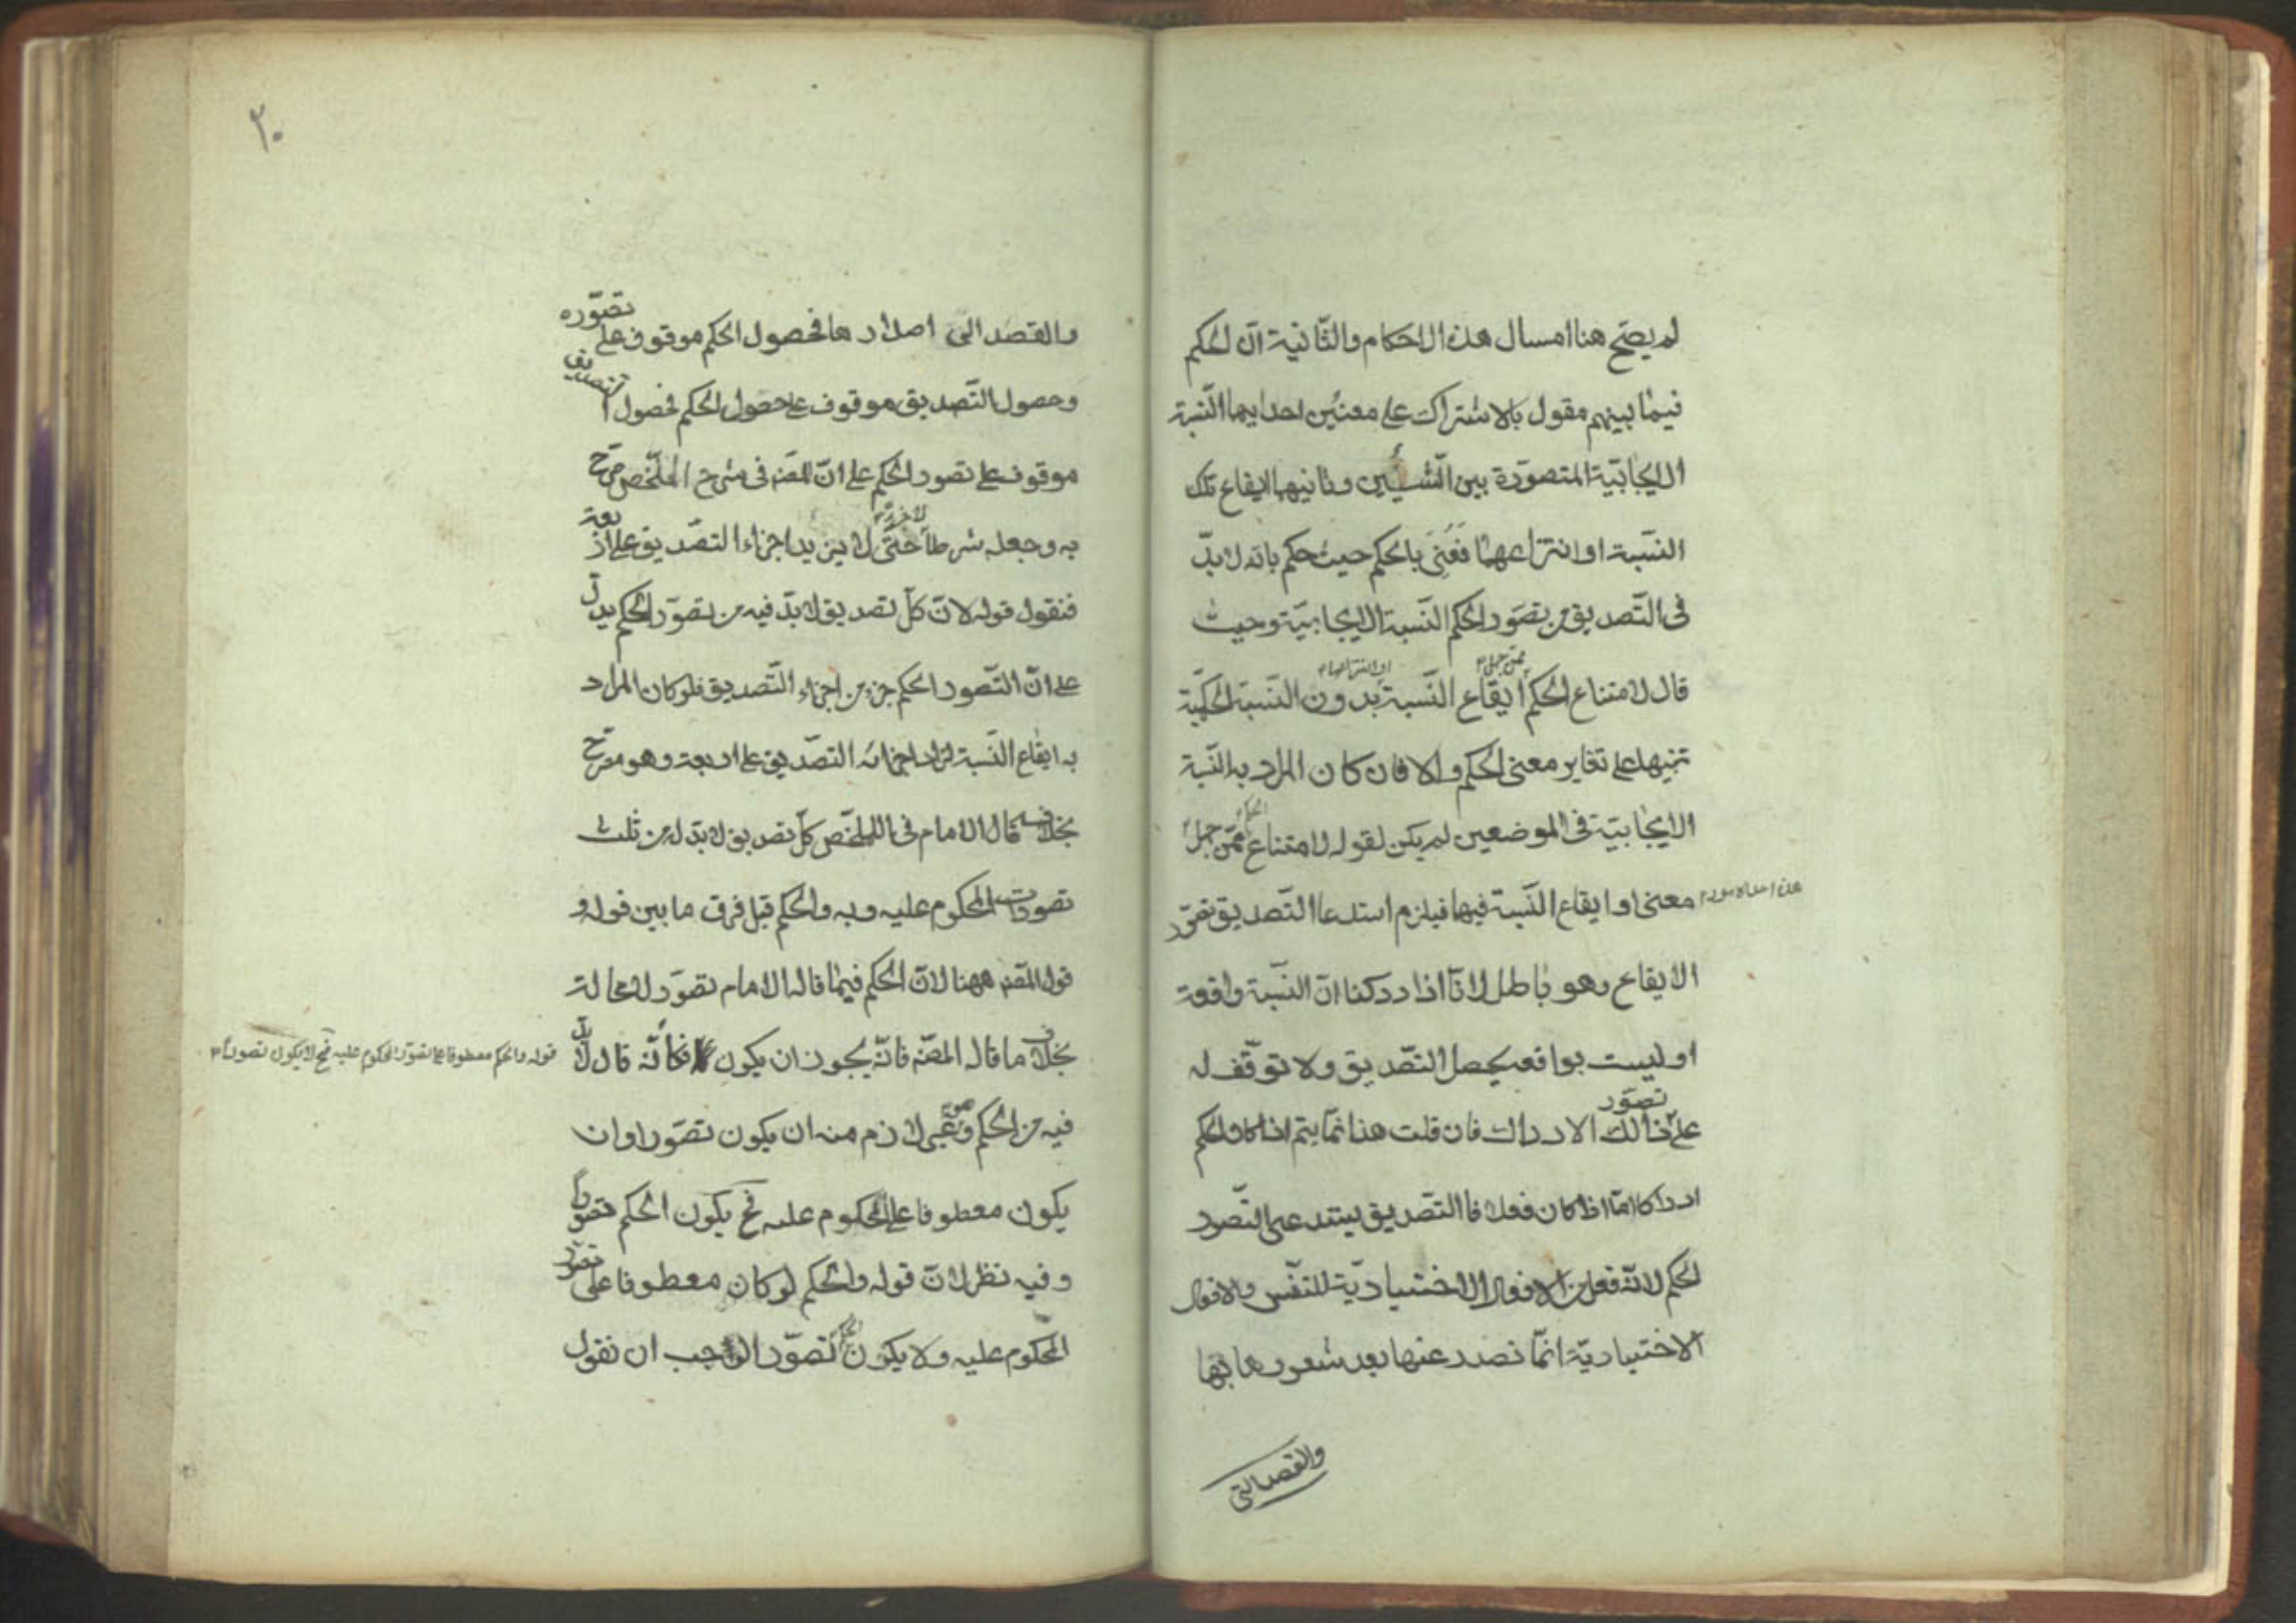 لم يصح هنا امسال هذه الاحكام والثانية ان الحكم
فيما بينهم مقول بالاشتراك على معنيين احدايهما النسبة
الايجابية المتصورة بين الشيئين وثانيهما ايقاع تلك
النسبة او انتزاعهما فعني بالحكم حيث حكم بانه لا بدّ
فى التصديق من تصور الحكم النسبة الايجابية وحيث
قال لامتناع الحكم ايقاع النسبة بدون النسبة الحكمية
ممن جهل
او انتزاعها
تنبيها على تغاير معنى الحكم والا فان كان المراد به النسبة
الايجابية فى الموضعين لم يكن لقوله لامتناع الحكم ممن جهل
معنى او ايقاع النسبة فيها فيلزم استدعا التصديق تصور
الايقاع وهو باطل لانّا اذا دركنا ان النسبة واقعة
او ليست بواقعه يحصل التصديق ولا توقف له
على تصور ذالك الادراك فان قلت هذا انما يتم اذا كان الحكم
ادراكا امّا اذا كان فعلا فا التصديق يستدعى التصور
الحكم لانه فعل من الافعال الاختيادية للنفس والافعال
الاختيادية انّما تصدر عنها بعد شعورها بها
والقصد الى
٢٠
والقصد الى اصدارها فحصول الحكم موقوف على تصوّره
وحصول التصديق موقوف على حصول الحكم فحصول التصديق
موقوف على تصور الحكم على ان المصنه فى شرح الملخص صرّح
به وجعله شرطا حتى لا يزيد اجزاء التصديق على اربعة
فنقول قوله لان كلّ تصديق لا بدّ فيه من تصوّر الحكم يدلّ
على ان التصور الحكم جزء من اجزاء التصديق فلو كان المراد
به ايقاع النسبة لزاد اجزائه التصديق على اربعة وهو مصرّح
بخلافه قال الامام فى الملخص كلّ تصديق لا بدّ له من ثلث
تصورات المحكوم عليه وبه والحكم قيل فرق ما بين قوله و
قول المصنه ههنا لانّ الحكم فيما قاله الامام تصوّر لا محالة
بخلاف ما قاله المصنه فانّه يجوز ان يكون فكأنّه قال لا بدّ
قوله والحكم معطوفا على تصور المحكوم عليه فح لا يكون تصورا
فيه من الحكم وهو غير لازم منه ان يكون تصوّرا وان
يكون معطوفا على المحكوم عليه فح يكون الحكم تصورا
وفيه نظر لانّ قوله والحكم لو كان معطوفا على تصور
المحكوم عليه ولا يكون الحكم تصوّرا لوجب ان نقول